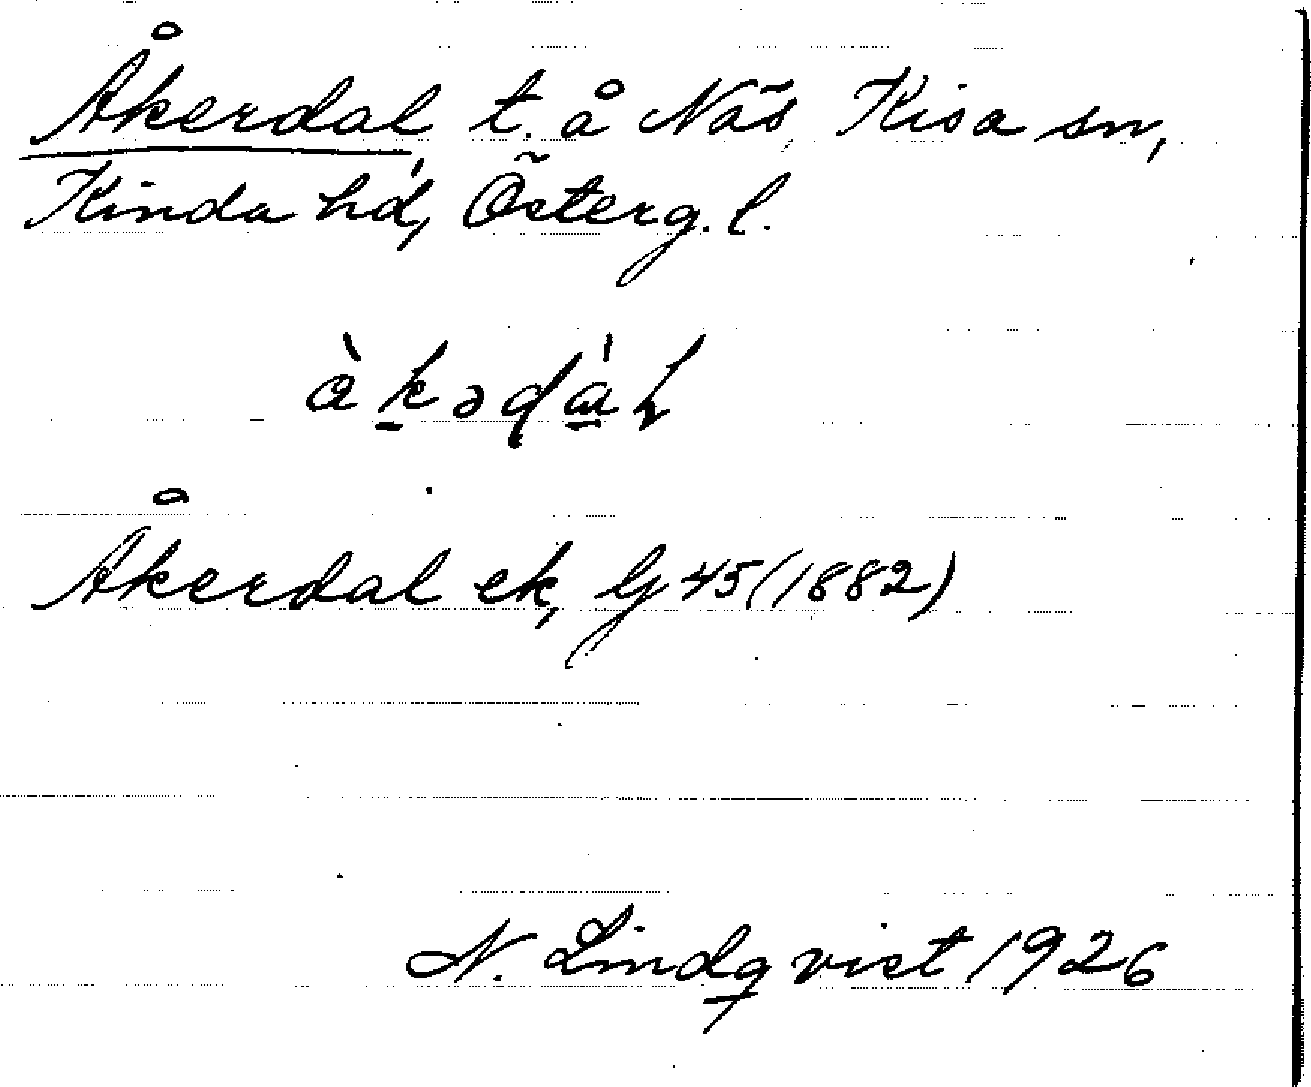 Åkerdal t. å Näs, Kisa sn,
Kinda hd, Österg. l.
Åkerdal ek, G 45 (1882)
N. Lindqvist 1926